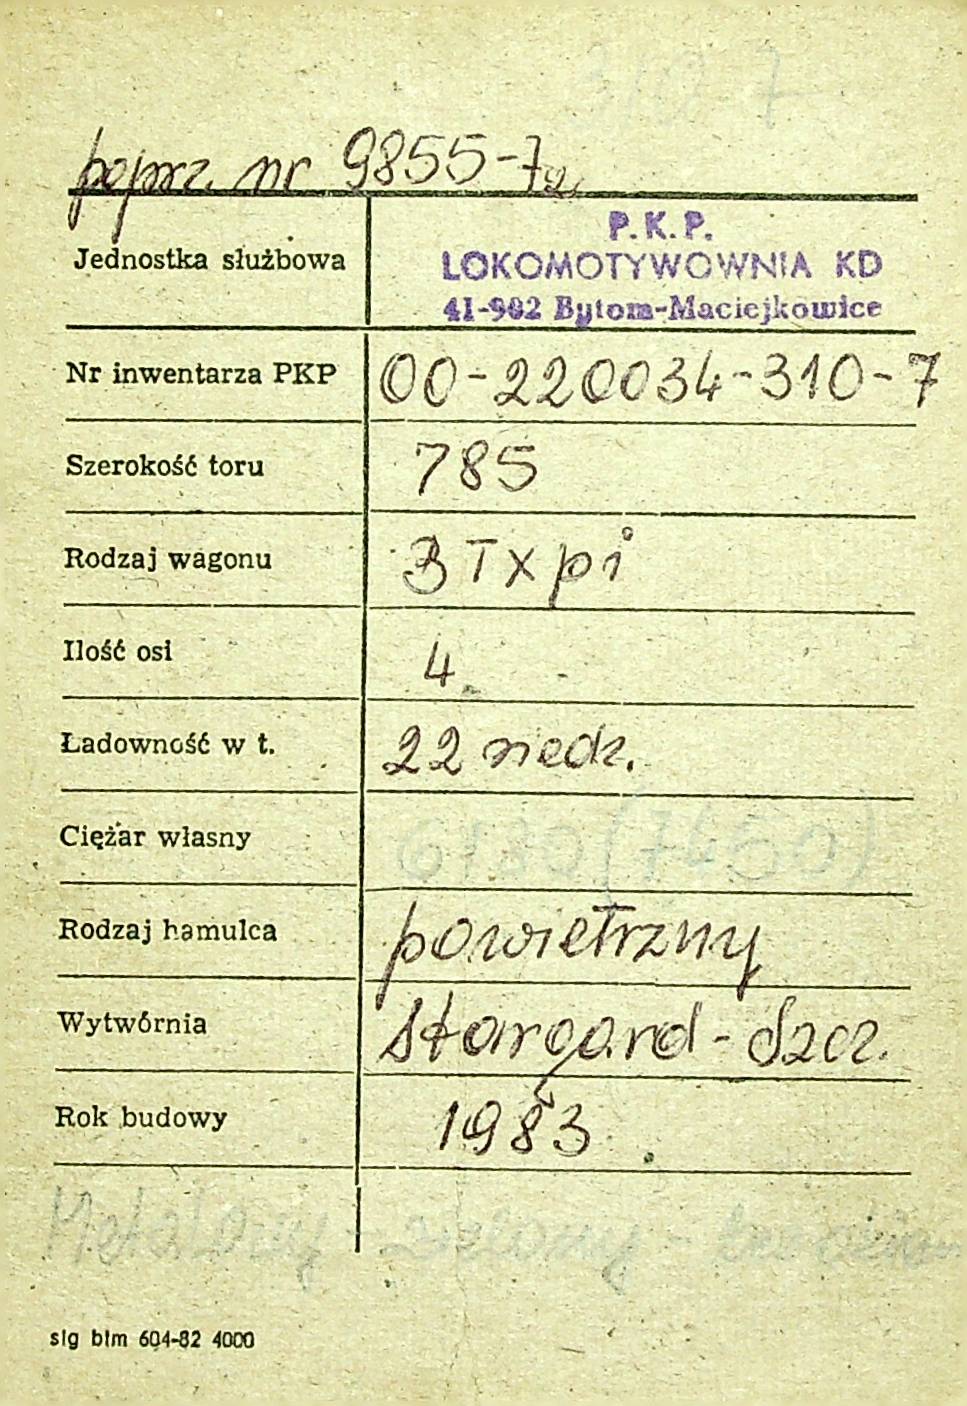 310-7
poprz. nr 9855-7
Jednostka służbowa
P.K.P.
LOKOMOTYWOWNIA KD
41-902 Bytom-Maciejkowice
Nr inwentarza PKP 00-220034-310-7
Szerokość toru 785
Rodzaj wagonu 3Txpi
Ilość osi 4
Ładowność w t. 22 siedz.
Ciężar własny 6130 (7450)
Rodzaj hamulca powietrzny
Wytwórnia Stargard-Szcz.
Rok budowy 1983
Metalowy - zielony -
slg blm 604-82 4000